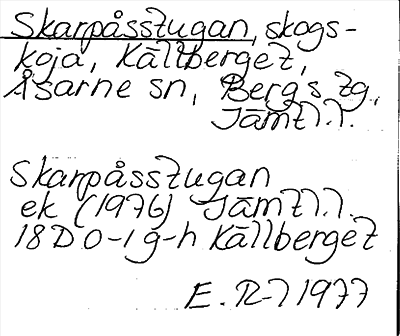 Skarpåsstugan, skogs-
koja, Källberget,
Åsarne sn, Bergs tg.,
Jämtl.l.
Skarpåsstugan
ek (1976) Jämtl.l.
18D 0-1 g-h Källberget
E. R-l 1977